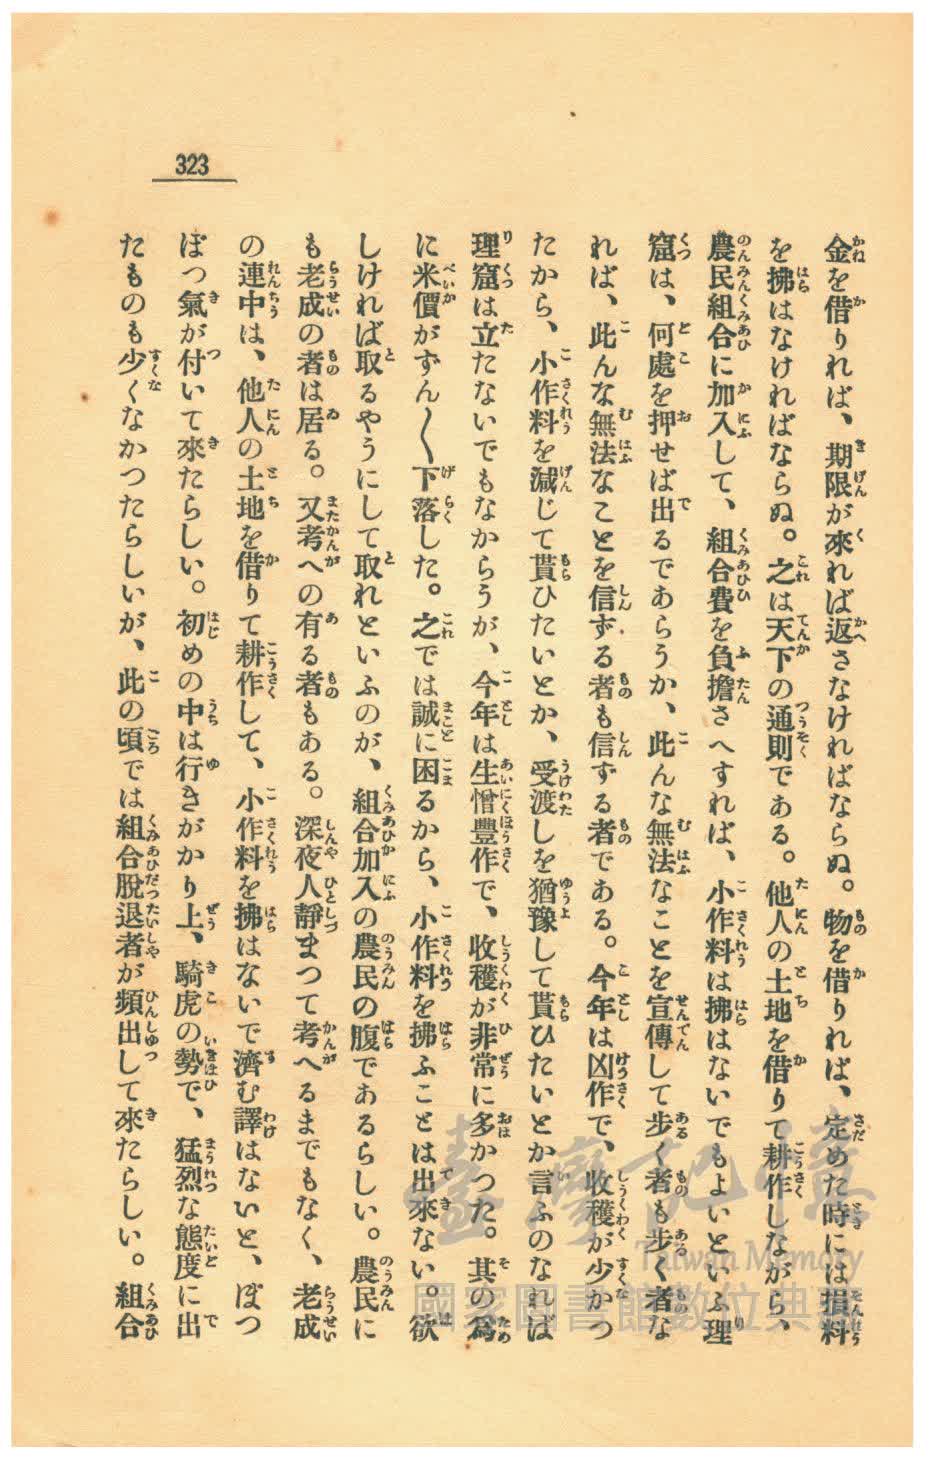 323
金を借りれば、期限が來れば返さなければならぬ。物を借りれば、定めた時には損料
を拂はなければならぬ。之は天下の通則である。他人の土地を借りて耕作しながら、
農民組合に加入して、組合費を負擔さへすれば、小作料は拂はないでもよいといふ理
窟は、何處を押せば出るであらうか、此んな無法なことを宣傳して步く者も步く者な
れば、此んな無法なことを信ずる者も信ずる者である。今年は凶作で、收穫が少かつ
たから、小作料を減じて貰ひたいとか、受渡しを猶豫して貰ひたいとか言ふのなれば
理窟は立たないでもなからうが、今年は生憎豐作で、收穫が非常に多かつた。其の爲
に米價がずん〳〵下落した。之では誠に困るから、小作料を拂ふことは出來ない。欲
しければ取るやうにして取れといふのが、組合加入の農民の腹であるらしい。農民に
も老成の者は居る。又考への有る者もある。深夜人靜まつて考へるまでもなく、老成
の連中は、他人の土地を借りて耕作して、小作料を拂はないで濟む譯はないと、ぼつ
ぼつ氣が付いて來たらしい。初めの中は行きがかり上、騎虎の勢で、猛烈な態度に出
たものも少くなかつたらしいが、此の頃では組合脫退者が頻出して來たらしい。組合
臺灣記憶
Taiwan Memory
國家圖書館數位典藏